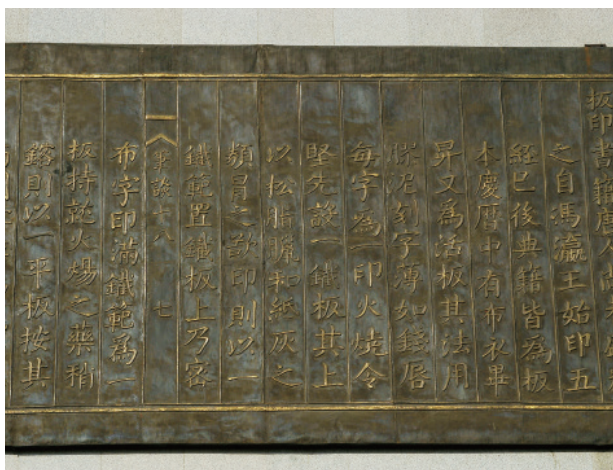 板印書籍唐人尚未盛爲
之自馮瀛王始印五
經已後典籍皆爲板
本慶曆中有布衣畢
昇又爲活板其法用
膠泥刻字薄如錢唇
每字爲一印火燒令
堅先設一鐵板其上
以松脂臘和紙灰之
類冒之欲印則以一
鐵範置鐵板上乃密
筆談十八 七
布字印滿鐵範爲一
板持就火煬之藥稍
鎔則以一平板按其